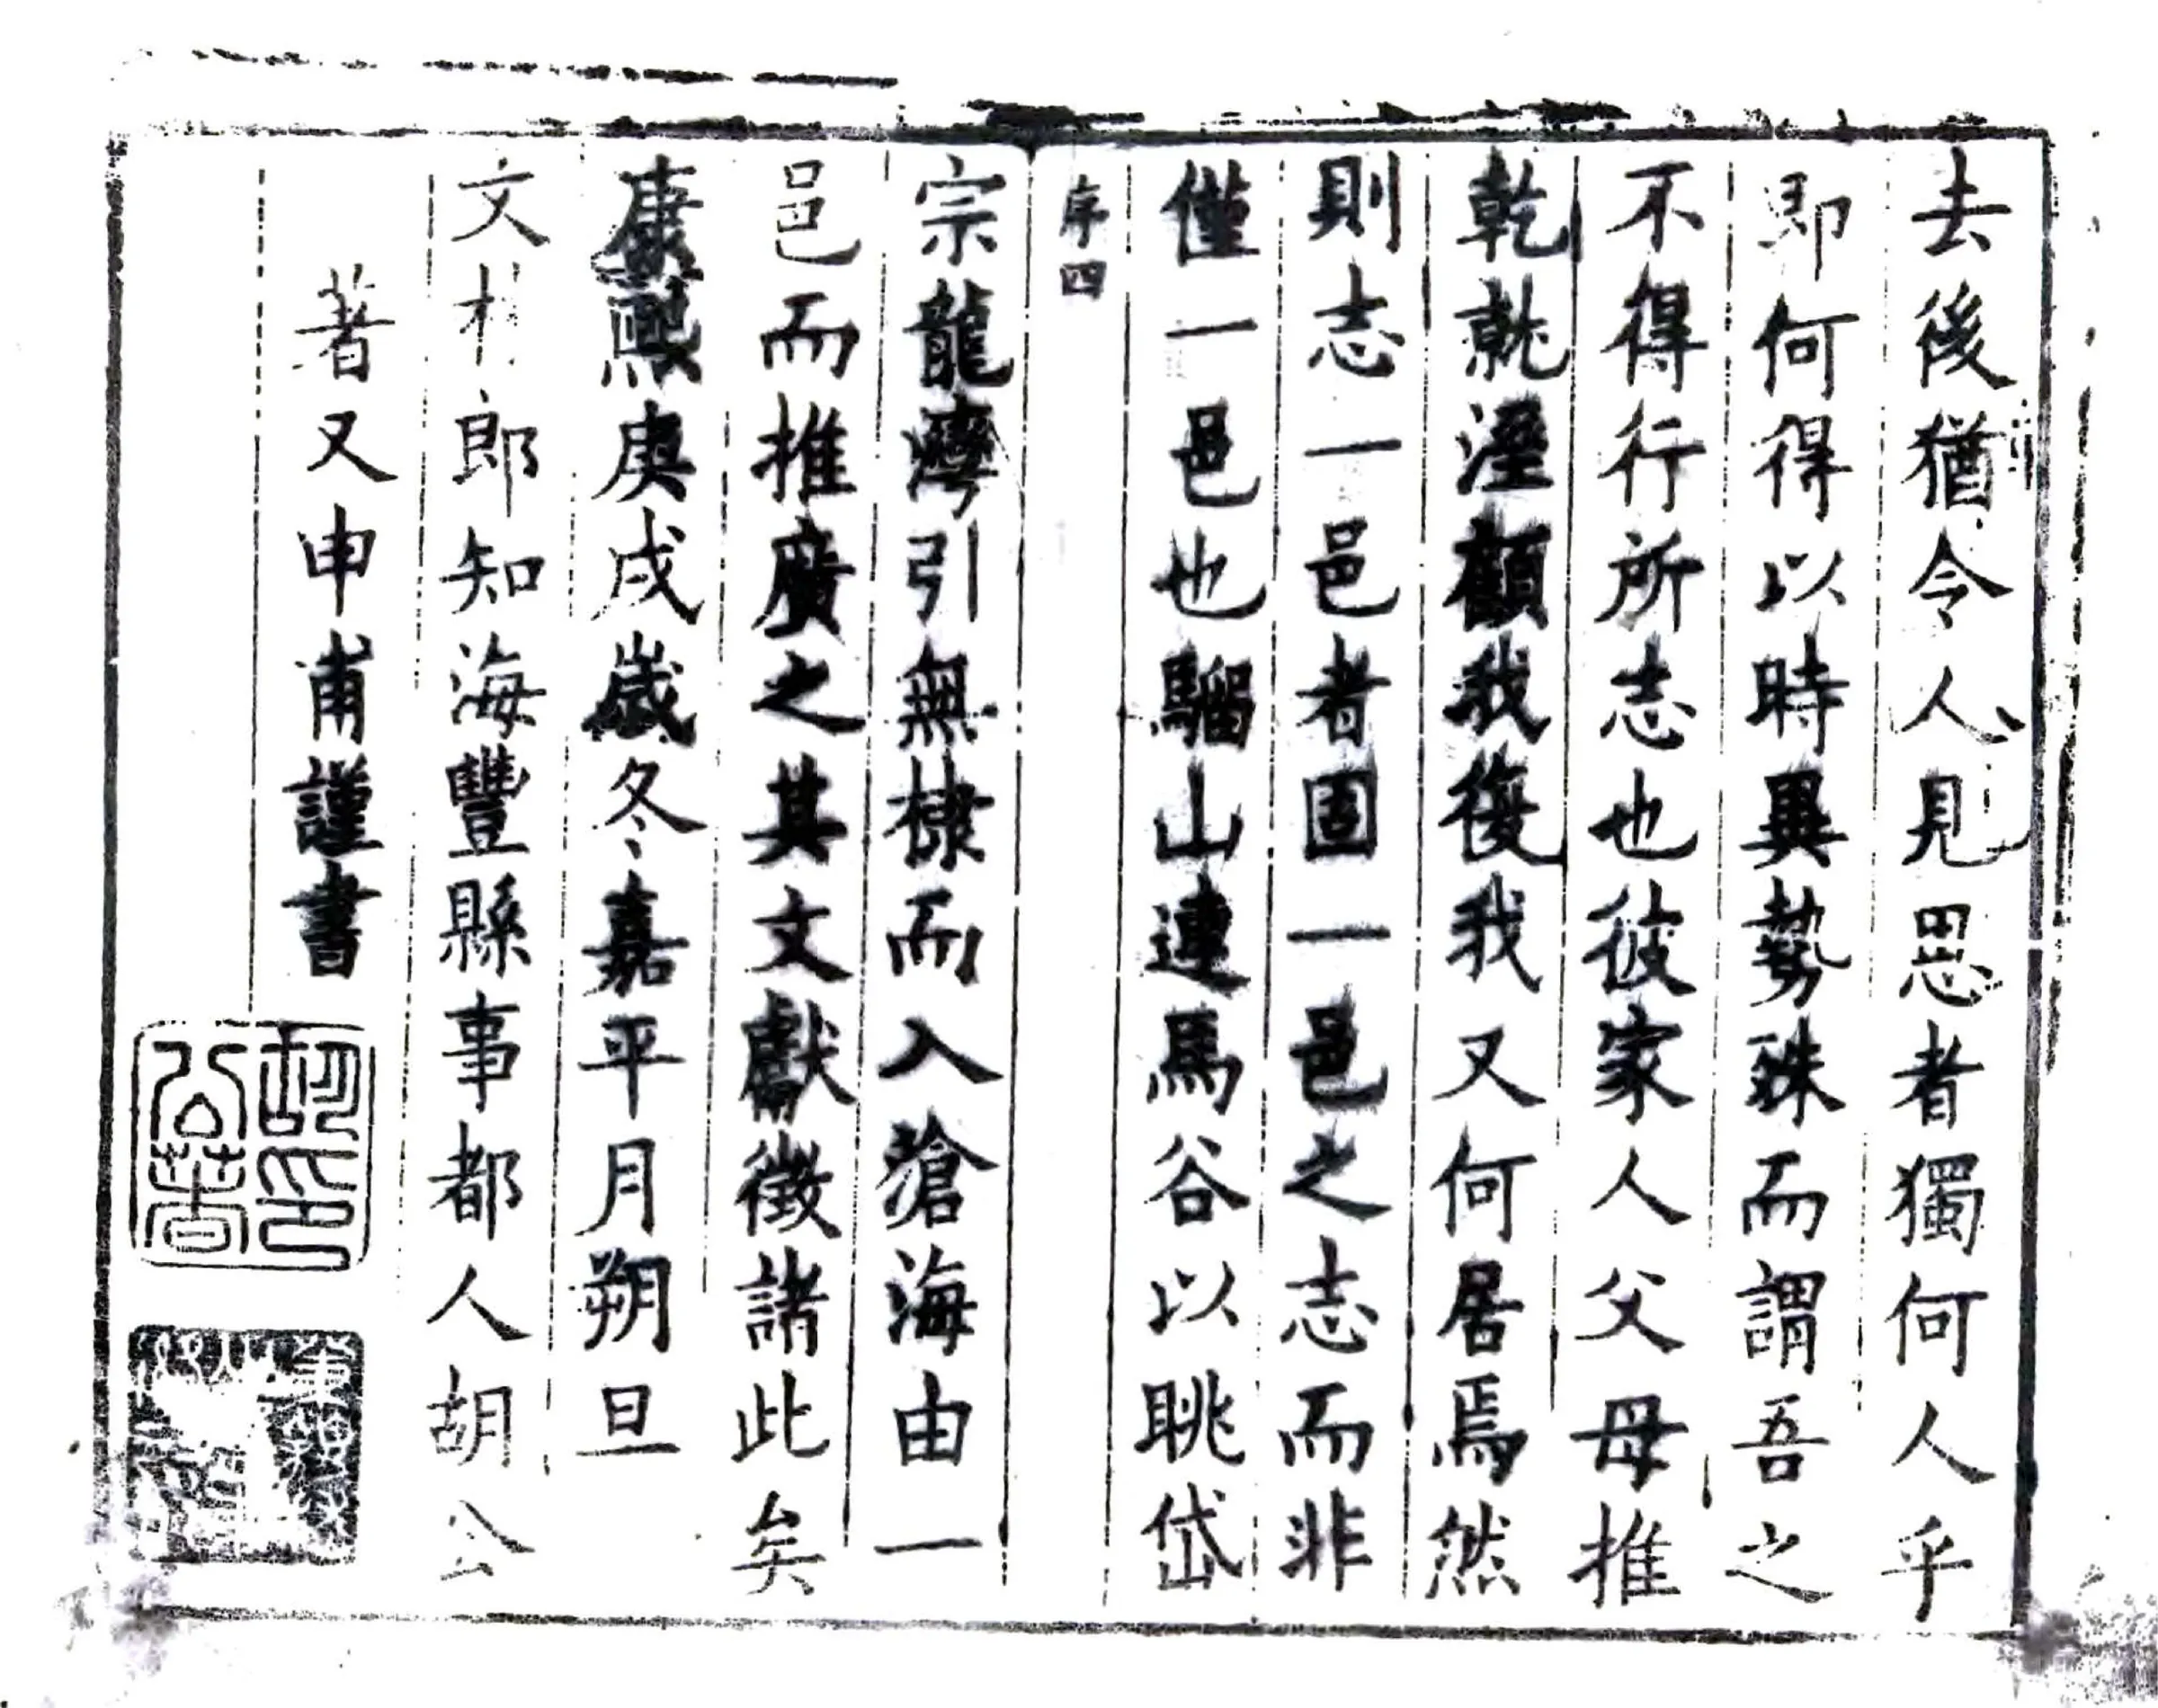 去後猶令人見思者獨何人乎
即何得以時異勢殊而謂吾之
不得行所志也彼家人父母推
乾就溼顧我復我又何居焉然
則志一邑者固一邑之志而非
僅一邑也騮山連馬谷以眺岱
序四
宗龍灣引無棣而入滄海由一
邑而推廣之其文獻徵諸此矣
康熙庚戌歲冬嘉平月朔旦
文林郎知海豐縣事都人胡公
著又申甫謹書
胡印公著